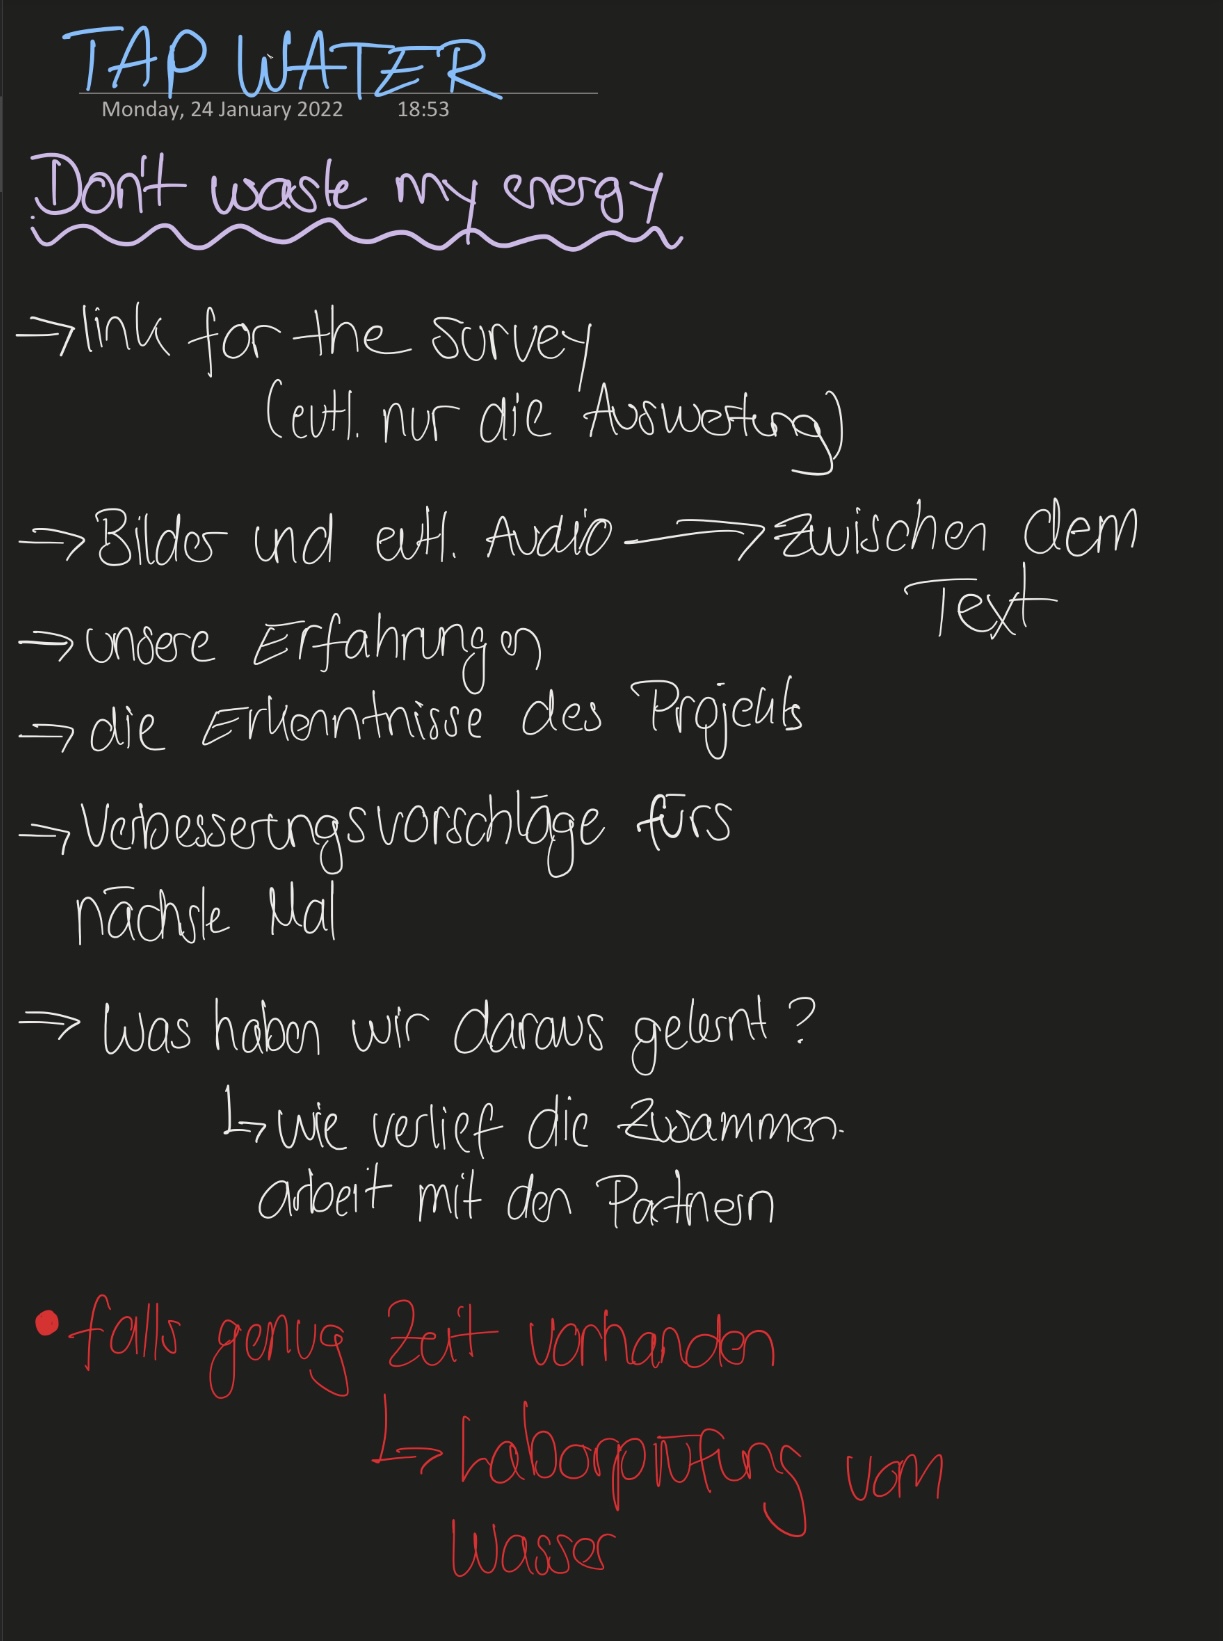 TAP WATER
Monday, 24 January 2022 18:53
Don't waste my energy
→ link for the survey
(evtl. nur die Auswertung)
→ Bilder und evtl. Audio → zwischen dem
Text
→ unsere Erfahrungen
→ die Erkenntnisse des Projekts
→ Verbesserungsvorschläge fürs
nächste Mal
→ Was haben wir daraus gelernt?
↳ wie verlief die Zusammen-
arbeit mit den Partnern
• falls genug Zeit vorhanden
↳ Laborprüfung vom
Wasser